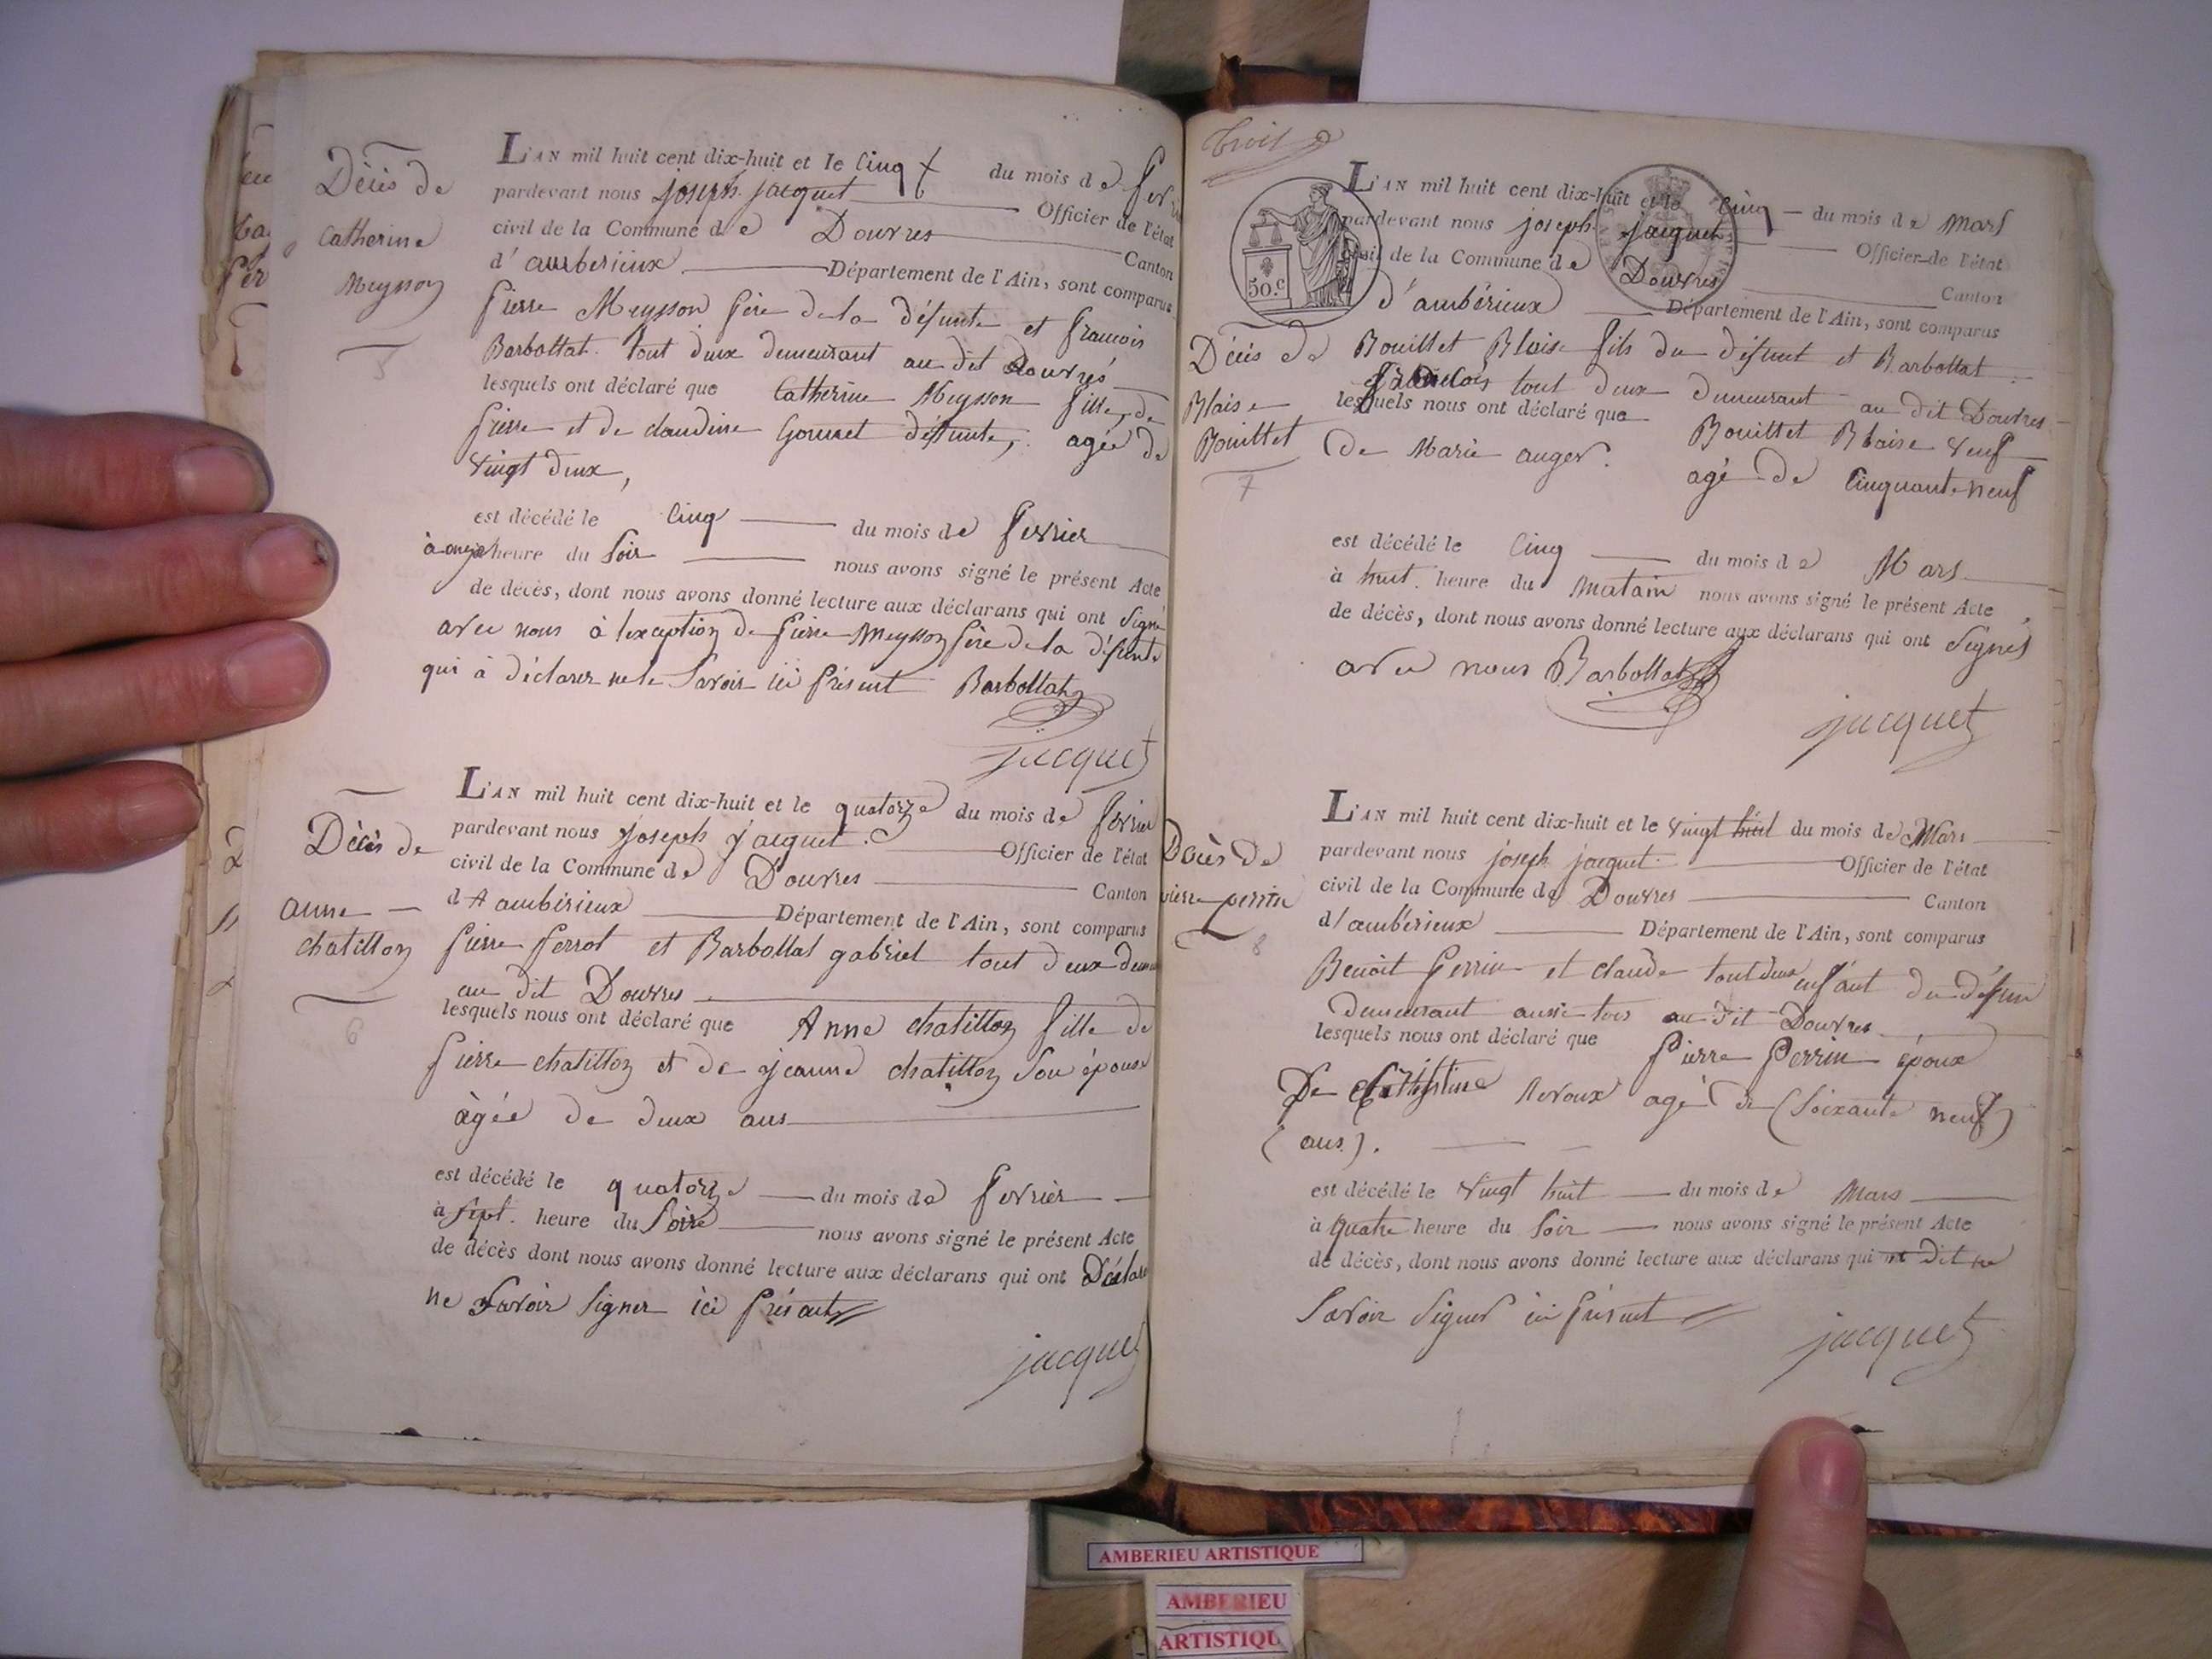 Décès de
Catherine
Meysson
5
L'AN mil huit cent dix-huit et le Cinq du mois de
pardevant nous joseph jacquet Officier de l'état
civil de la Commune de Douvres Canton
d'ambérieux Département de l'Ain, sont comparus
pierre Meysson père de la défunte et françois
Barbollat. tout deux demeurant au dit Douvres
lesquels ont déclaré que Catherine Meysson fille de
pierre et de claudine défunte, agée de
vingt deux,
est décédé le Cinq du mois de fevrier
à onze heure du soir nous avons signé le présent Acte
de décès, dont nous avons donné lecture aux déclarans qui ont signé
avec nous à lexception de pierre Meysson père de la défunte
qui à déclarer ne le savoir ici présent Barbollat
jacquet
Décès de
anne
chatillon
6
L'AN mil huit cent dix-huit et le quatorze du mois de fevrier
pardevant nous joseph jacquet. Officier de l'état
civil de la Commune de Douvres Canton
d'Aambérieux Département de l'Ain, sont comparus
pierre perrot et Barbollat gabriel tout deux
au dit Douvres
lesquels nous ont déclaré que Anne chatillon fille de
pierre chatillon et de jeanne chatillon son épouse
àgée de deux ans
est décédé le quatorze du mois de fevrier
à sept. heure du soire nous avons signé le présent Acte
de décès dont nous avons donné lecture aux déclarans qui ont
ne savoir signer ici présent
jacquet
50.c
Décès de
Blaise
Bouillet
7
L'AN mil huit cent dix-huit et le Cinq du mois de Mars
pardevant nous joseph jacquet Officier de l'état
civil de la Commune de Douvres Canton
d'ambérieux Département de l'Ain, sont comparus
Bouillet Blaise fils du défunt et Barbollat
françois tout deux demeurant au dit Douvres
lesquels nous ont déclaré que Bouillet Blaise veuf
de Marie auger. agé de Cinquante neuf
est décédé le Cinq du mois de Mars
à huit. heure du matain nous avons signé le présent Acte
de décès, dont nous avons donné lecture aux déclarans qui ont signés
avec nous Barbollat
jacquet
Décès de
pierre perrin
8
L'AN mil huit cent dix-huit et le vingt huit du mois de Mars
pardevant nous joseph jacquet Officier de l'état
civil de la Commune de Douvres Canton
d'ambérieux Département de l'Ain, sont comparus
Benoit perrin et claude tout deux enfant du
demeurant au dit Douvres
lesquels nous ont déclaré que pierre Perrin époux
De agé de (soixante neuf)
(ans).
est décédé le vingt huit du mois de Mars
à quatre heure du soir nous avons signé le présent Acte
de décès, dont nous avons donné lecture aux déclarans qui ont dit ne
savoir signer ici présent
jacquet
AMBERIEU ARTISTIQUE
AMBERIEU
ARTISTIQU